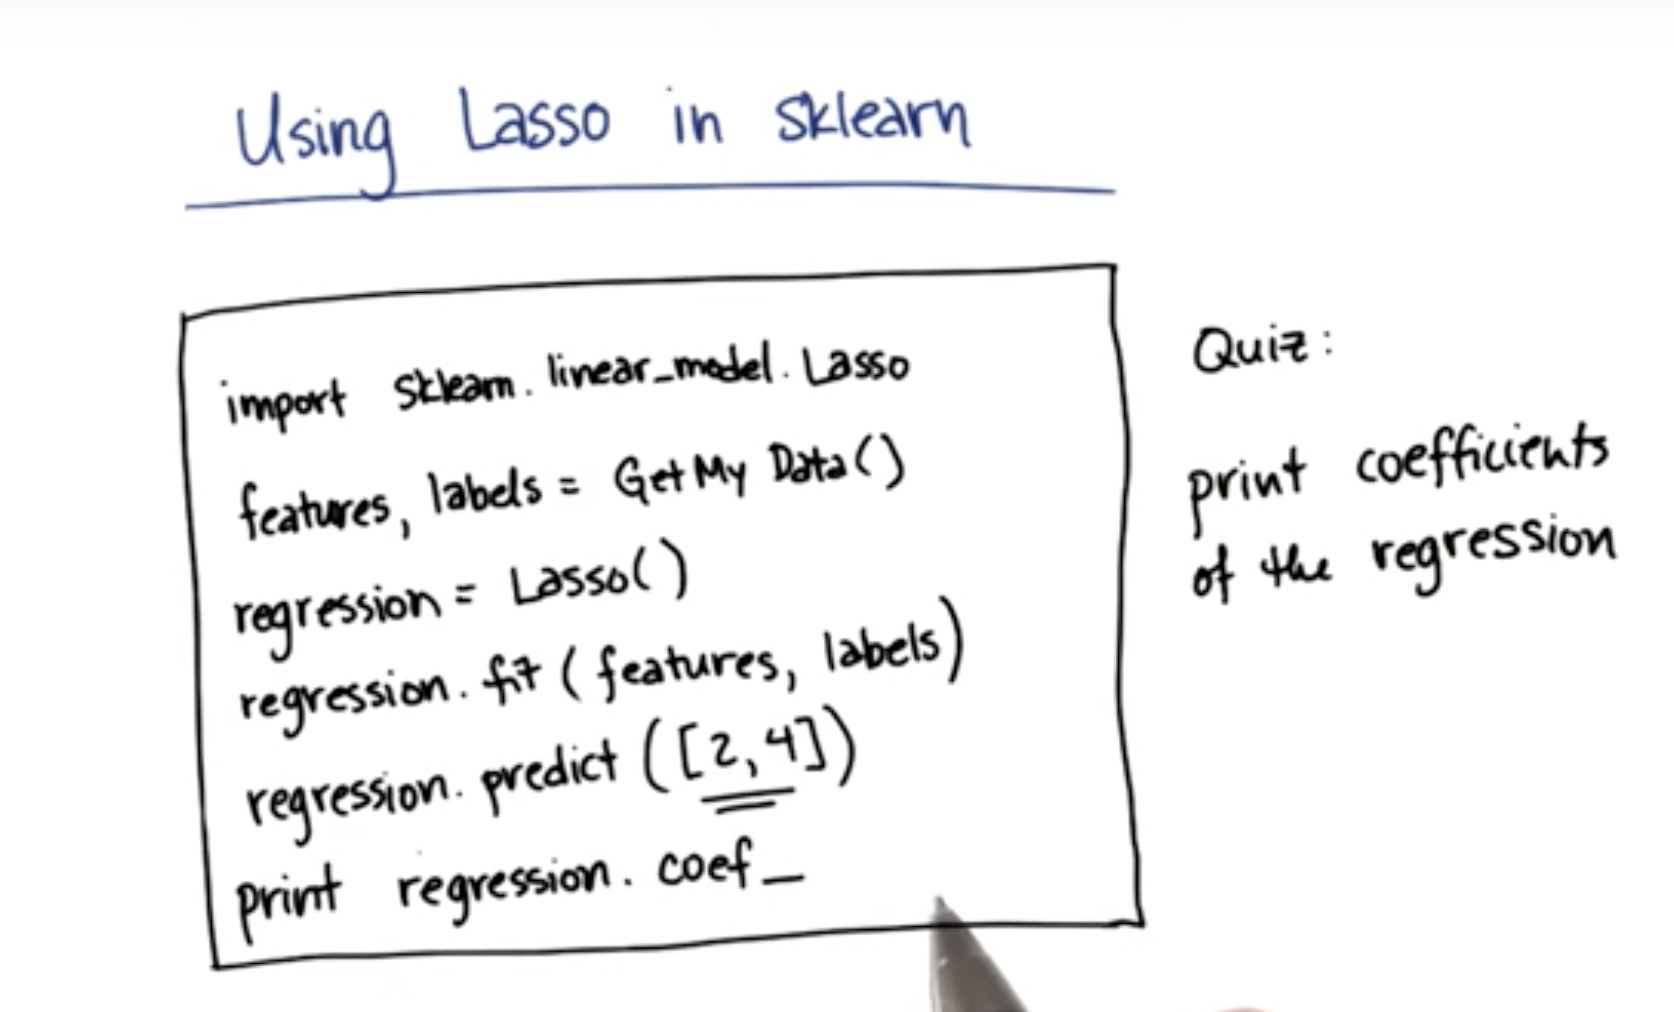 Using Lasso in sklearn
import sklearn.linear_model.Lasso
features, labels = GetMyData()
regression = Lasso()
regression.fit(features, labels)
regression.predict([2,4])
print regression.coef_
Quiz:
print coefficients
of the regression